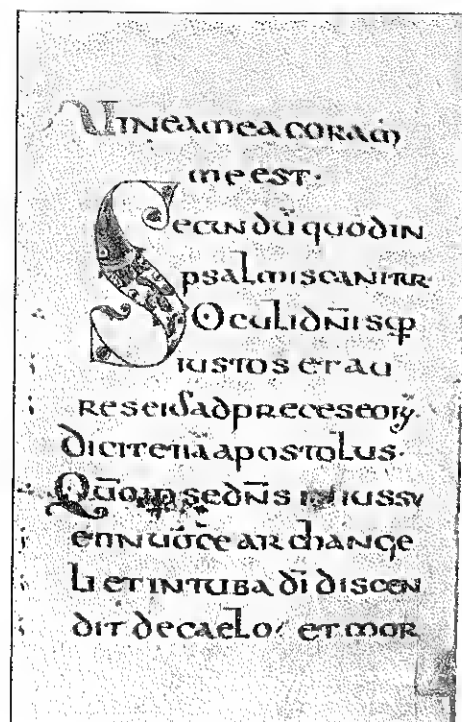 Uinea mea coram
me est·
Secundū quod in
psalmis canitur·
Oculi dn̄i sup
iustos et au
res eius ad preces eorum·
dicit etiā apostolus·
Qūom ipse dn̄s in iussu
et in uōce archange
li et in tuba dī discen
dit de caelo: et mor